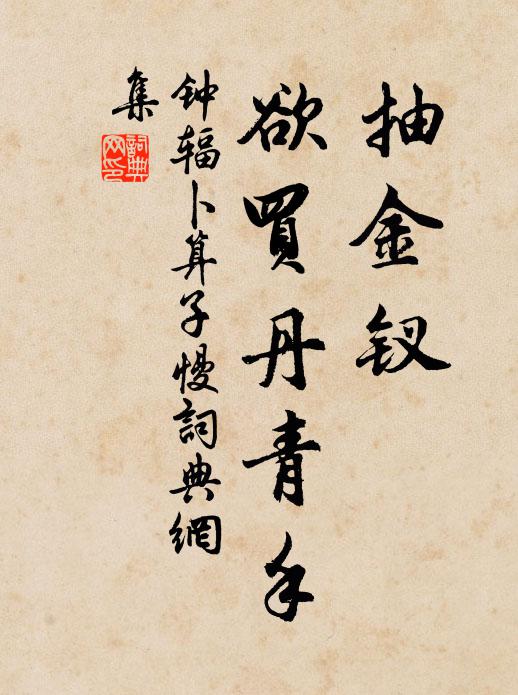 抽金钗
欲買丹青手
钟辐卜算子慢詞典網
集
詞典
网印